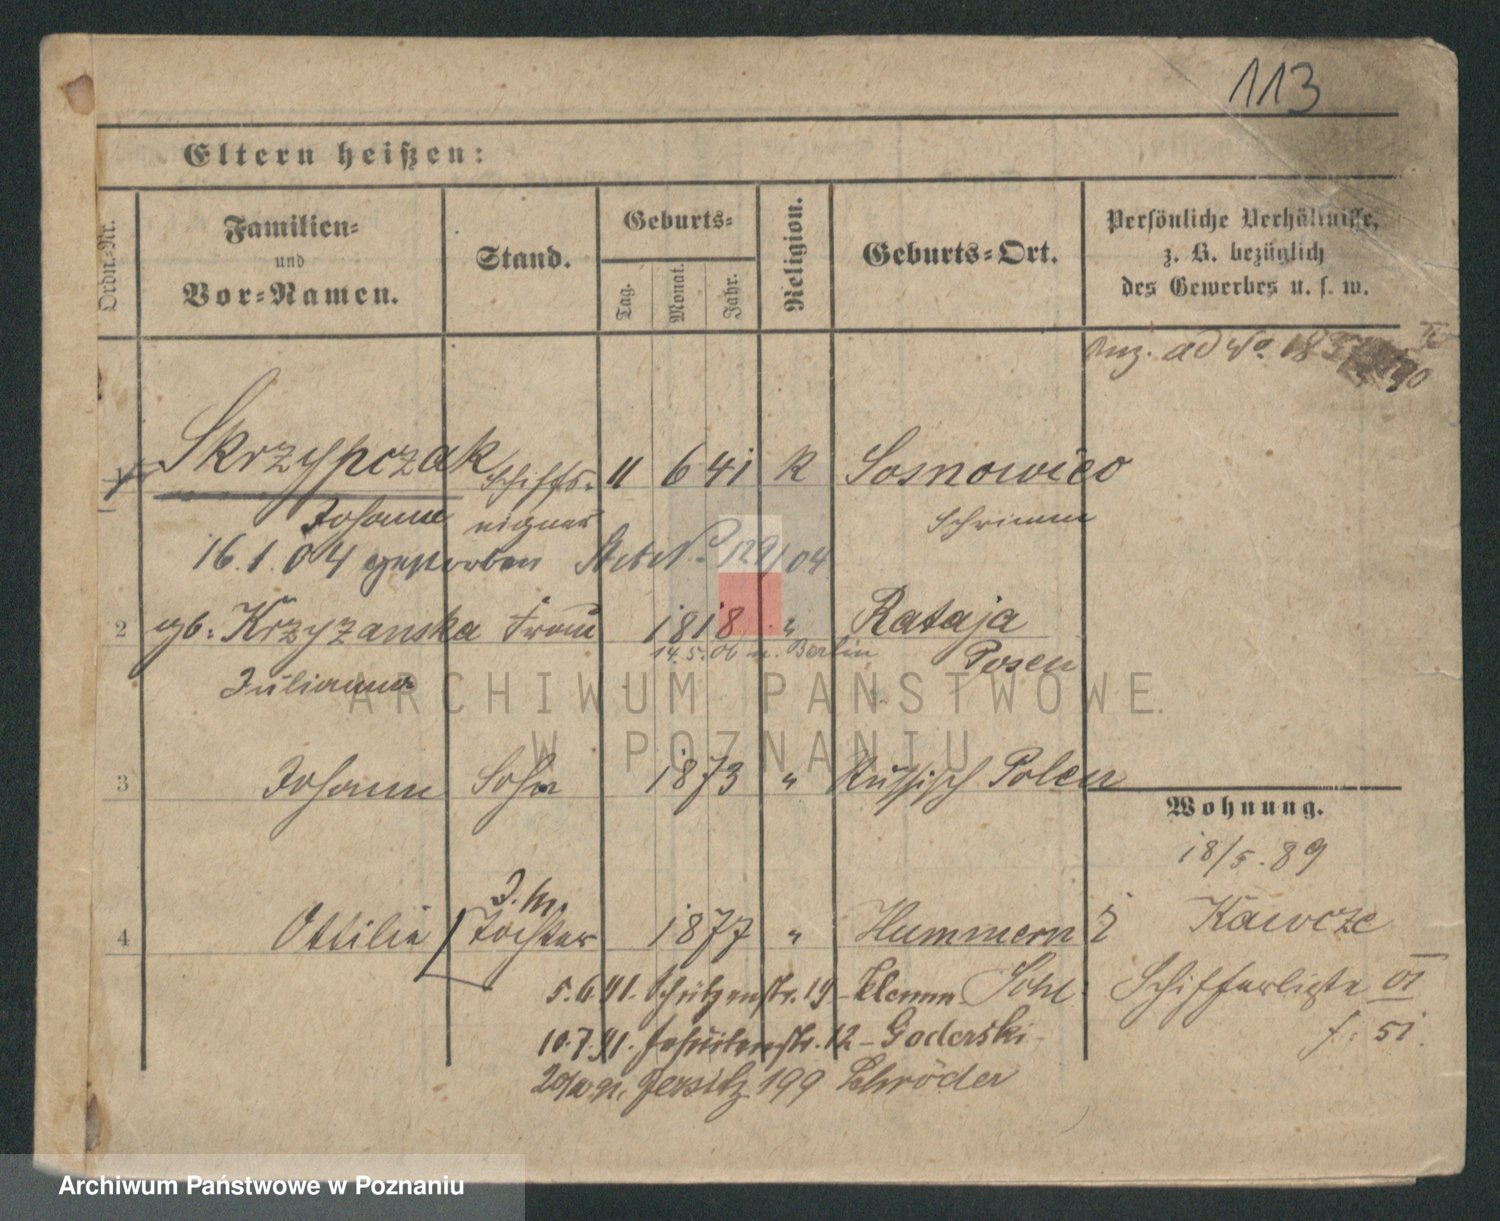 113
Eltern heißen:
Ordn.-Nr.
Familien-
und
Vor-Namen.
Stand.
Geburts-
Tag.
Monat.
Jahr.
Religion.
Geburts-Ort.
Persönliche Verhältnisse,
z. B. bezüglich
des Gewerbes u. s. w.
1 Skrzypczak Schiffs- 11 6 41 K Sosnowiec
Johann eigner Schrimm
16.1.04 gestorben No 129/04
2 gb: Krzyzanska Frau 1818 " Rataja
14.5.06 n. Berlin Posen
Julianna
ARCHIWUM PAŃSTWOWE
W POZNANIU
3 Johann Sohn 1873 " Russisch Polen
Wohnung.
18/5.89
4 Ottilie Tochter 1877 " Hummern
Kawcze
5.6.91. Schützenstr. 19 -
Schifferliste VI
f. 51.
10.7.91. Jesuitenstr. 12 - Goderski -
Jersitz 199 Schröder
Archiwum Państwowe w Poznaniu